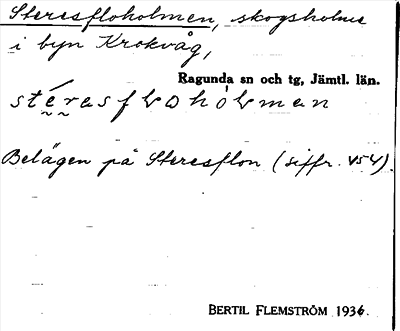 Steresfloholmen, skogsholme
i byn Krokvåg,
Ragunda sn och tg, Jämtl. län.
Belägen på Steresflon (siffr. 454).
BERTIL FLEMSTRÖM 1936.